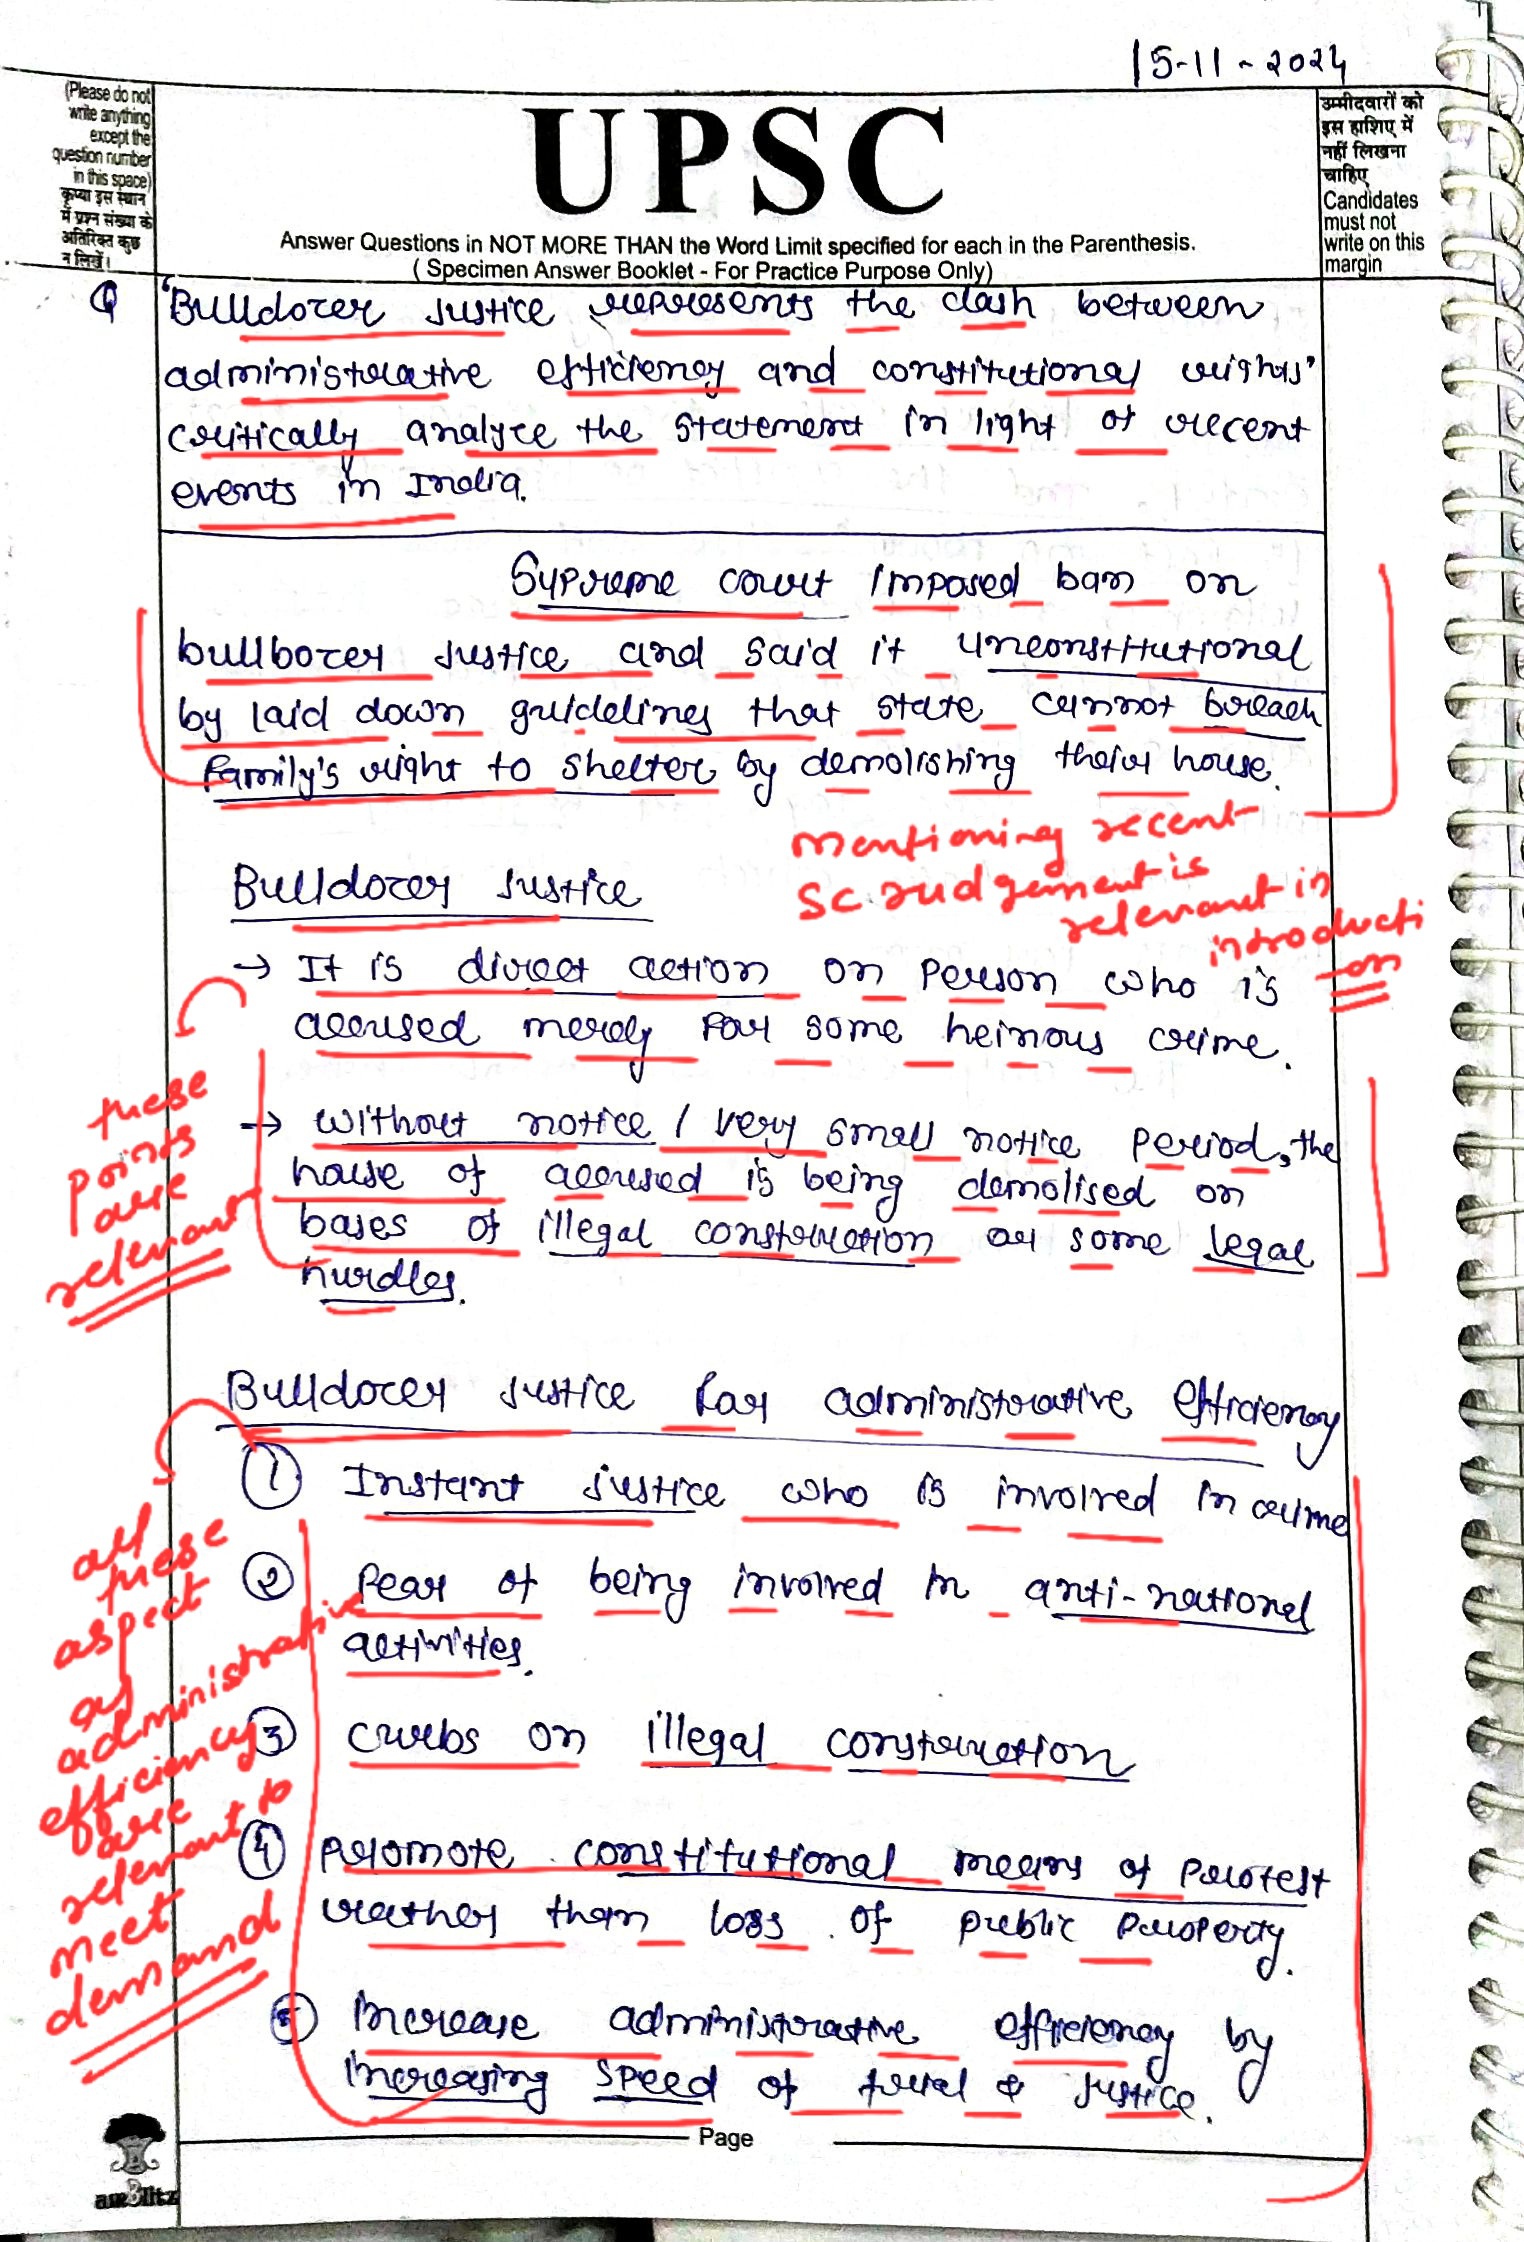 15-11-2024
(Please do not
write anything
except the
question number
in this space)
कृप्या इस स्थान
में प्रश्न संख्या के
अतिरिक्त कुछ
न लिखें।
UPSC
Answer Questions in NOT MORE THAN the Word Limit specified for each in the Parenthesis.
( Specimen Answer Booklet - For Practice Purpose Only)
उम्मीदवारों को
इस हाशिए में
नहीं लिखना
चाहिए
Candidates
must not
write on this
margin
Q 'Bulldozer justice represents the clash between
administrative efficiency and constitutional rights'
critically analyze the statement in light of recent
events in India.
Supreme court imposed ban on
bullbozer justice and said it unconstitutional
by laid down guidelines that state cannot breach
family's right to shelter by demolishing their house.
mentioning recent
SC judgement is
relevant in
introducti
-on
Bulldozer justice
→ It is direct action on person who is
accused merely for some heinous crime.
→ without notice / very small notice period, the
house of accused is being demolised on
bases of illegal construction or some legal
hurdles.
these
points
are
relevant
Bulldozer justice for administrative efficiency
① Instant justice who is involved in crime
② Fear of being involved in anti-national
activities.
③ Curbs on illegal construction
④ Promote constitutional means of protest
rather than loss of public property.
⑤ Increase administrative efficiency by
increasing speed of trial & justice.
all
these
aspect
of
administrative
efficiency
are
relevant to
meet
demand
Page